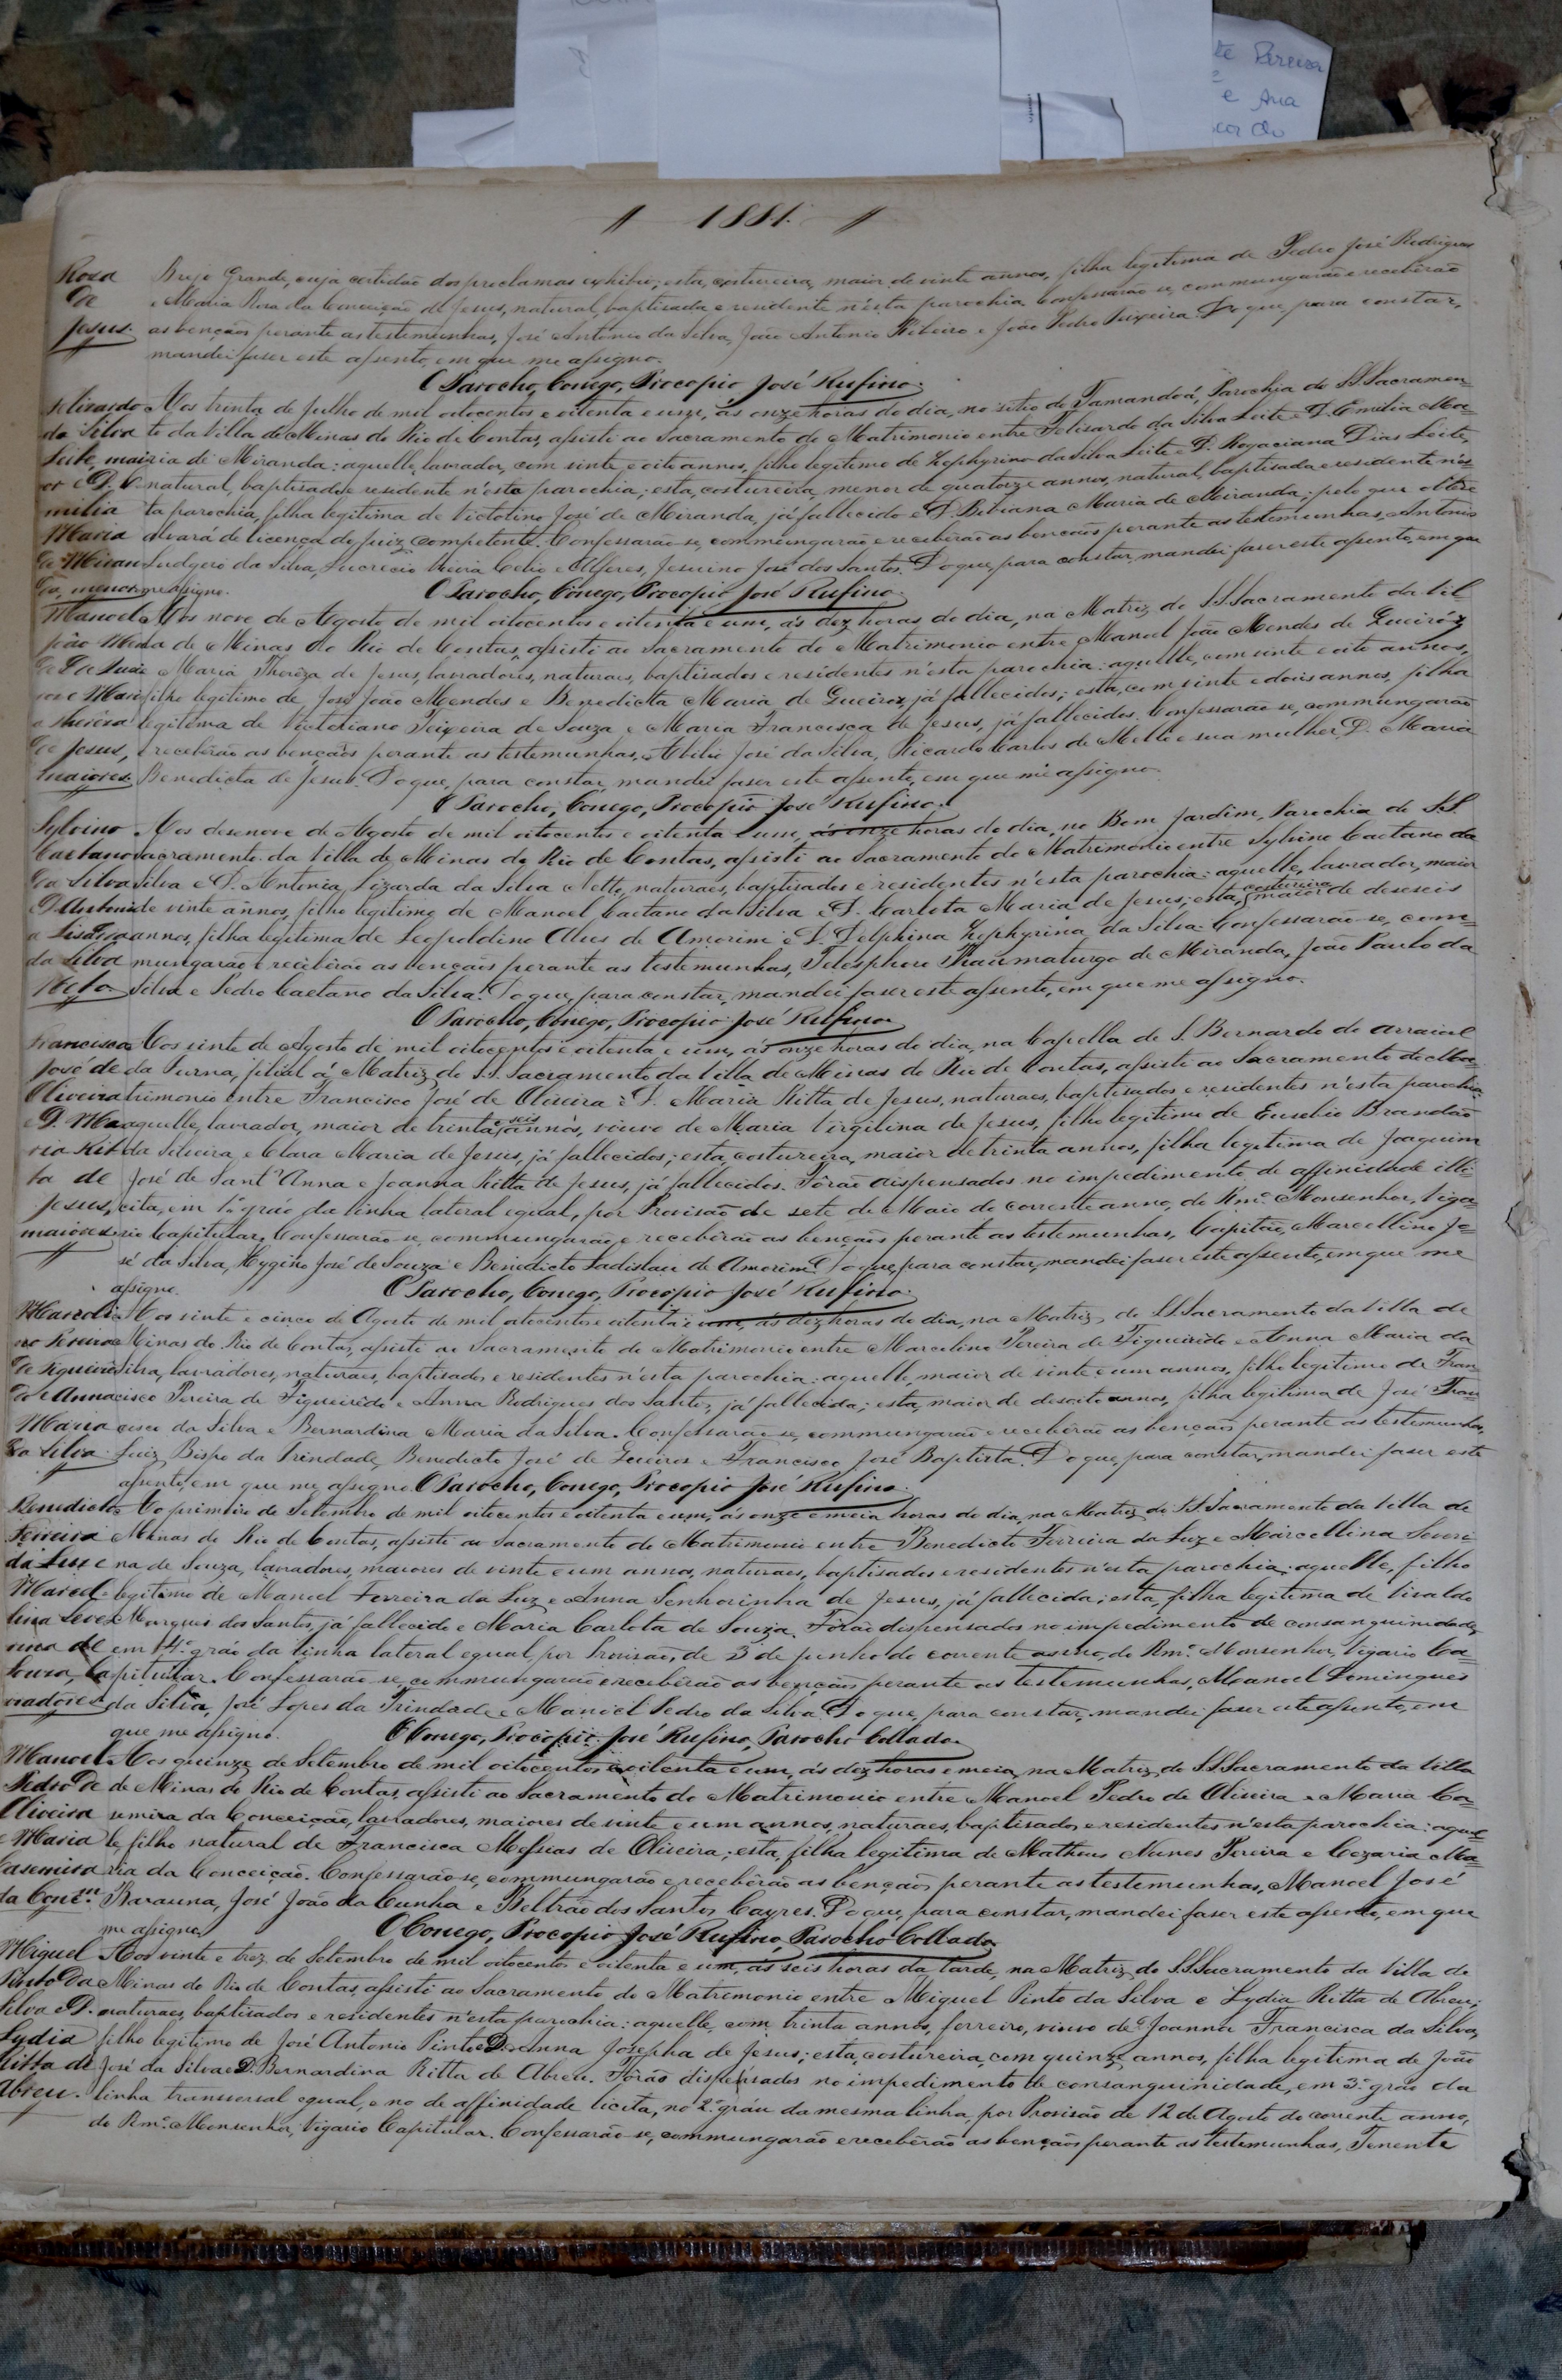 te Pereira
e Ana
cor do
1881.
Rosa Brejo Grande, cuja certidão dos proclamas exhibiu; esta, costureira, maior de vinte annos, filha legitima de Pedro José Rodrigues
de e Maria Rosa da Conceição de Jesus, natural, baptisada e residente n'esta parochia. Confessarão-se, commungarão e receberão
Jesus. as bençãos perante as testemunhas, José Antonio da Silva, João Antonio Ribeiro e João Pedro Teixeira. Do que, para constar,
mandei faser este assento, em que me assigno.
O Parocho, Conego, Procopio José Rufino.
Felisardo Aos trinta de Julho de mil oitocentos e oitenta e um, ás onze horas do dia, no sitio do Tamandoá, Parochia do S.S. Sacramen-
da Silva to da Villa de Minas do Rio de Contas, assisti ao Sacramento do Matrimonio entre Felisardo da Silva Leite e D. Emilia Ma-
Leite, maior ria de Miranda: aquelle, lavrador, com vinte e oito annos, filho legitimo de Zephyrino da Silva Leite e D. Rogaciana Dias Leite,
e D. E- natural, baptisado e residente n'esta parochia; esta, costureira, menor de quatorze annos, natural, baptisada e residente n'es-
milia ta parochia, filha legitima de Victolino José de Miranda, já fallecido e D. Bibiana Maria de Miranda; pelo que obtive
Maria alvará de licença do Juiz competente. Confessarão-se, commungarão e receberão as bençãos perante as testemunhas, Antonio
de Miran- Ludgero da Silva, Lucrecio Vieira Celio e Alferes, Jesuino José dos Santos. Do que, para constar, mandei faser este assento, em que
da, menor. me assigno. O Parocho, Conego, Procopio José Rufino.
Manoel Aos nove de Agosto de mil oitocentos e oitenta e um, ás dez horas do dia, na Matriz do S.S. Sacramento da Vil-
João Men- la de Minas do Rio de Contas, assisti ao Sacramento do Matrimonio entre Manoel João Mendes de Queiróz
des de Quei- e Maria Thereza de Jesus, lavradores, naturaes, baptisados e residentes n'esta parochia: aquelle, com vinte e oito annos,
roz e Mari- filho legitimo de José João Mendes e Benedicta Maria de Queiroz, já fallecidos; esta, com vinte e dous annos, filha
a Thereza legitima de Victoriano Teixeira de Souza e Maria Francisca de Jesus, já fallecidos. Confessarão-se, commungarão
de Jesus, e receberão as bençãos perante as testemunhas, Abilio José da Silva, Ricardo Carlos de Mello e sua mulher, D. Maria
maiores. Benedicta de Jesus. Do que, para constar, mandei faser este assento, em que me assigno.
O Parocho, Conego, Procopio José Rufino.
Sylvino Aos desenove de Agosto de mil oitocentos e oitenta e um, ás onze horas do dia, no Bom Jardim, Parochia do S.S.
Caetano Sacramento da Villa de Minas do Rio de Contas, assisti ao Sacramento do Matrimonio entre Sylvino Caetano da
da Silva Silva e D. Antonia Lizarda da Silva Netto, naturaes, baptisados e residentes n'esta parochia: aquelle, lavrador, maior
e D. Antoni- de vinte annos, filho legitimo de Manoel Caetano da Silva e D. Carlota Maria de Jesus; esta, costureira, maior de deseseis
a Lisarda annos, filha legitima de Leopoldino Alves de Amorim e D. Delphina Zephyrina da Silva. Confessarão-se, com-
da Silva mungarão e receberão as bençãos perante as testemunhas, Telesphoro Thaumaturgo de Miranda, João Paulo da
Neto Silva e Pedro Caetano da Silva. Do que, para constar, mandei faser este assento, em que me assigno.
O Parocho, Conego, Procopio José Rufino.
Francisco Aos vinte de Agosto de mil oitocentos e oitenta e um, ás onze horas do dia, na Capella de S. Bernardo do arraial
José de da Furna, filial á Matriz do S.S. Sacramento da Villa de Minas do Rio de Contas, assisti ao Sacramento do Ma-
Oliveira trimonio entre Francisco José de Oliveira e D. Maria Ritta de Jesus, naturaes, baptisados e residentes n'esta parochia:
e D. Ma- aquelle, lavrador, maior de trinta e seis annos, viuvo de Maria Virgilina de Jesus, filho legitimo de Eusebio Brandão
ria Rit- da Silveira e Clara Maria de Jesus, já fallecidos; esta, costureira, maior de trinta annos, filha legitima de Joaquim
ta de José de Sant'Anna e Joanna Ritta de Jesus, já fallecidos. Fôrão dispensados no impedimento de affinidade illi-
Jesus, cita, em 1º gráo da linha lateral egual, por Provisão de sete de Maio do corrente anno, do Rmº Monsenhor, Viga-
maiores. rio Capitular. Confessarão-se, commungarão e receberão as bençãos perante as testemunhas, Capitão, Marcellino Jo-
sé da Silva, Hygino José de Souza e Benedicto Ladislau de Amorim. Do que, para constar, mandei faser este assento, em que me
assigno. O Parocho, Conego, Procopio José Rufino.
Marcoli- Aos vinte e cinco de Agosto de mil oitocentos e oitenta e um, ás dez horas do dia, na Matriz do S.S. Sacramento da Villa de
no Pereira Minas do Rio de Contas, assisti ao Sacramento do Matrimonio entre Marcolino Pereira de Figueirêdo e Anna Maria da
de Figueirê- Silva, lavradores, naturaes, baptisados e residentes n'esta parochia: aquelle, maior de vinte e um annos, filho legitimo de Fran-
do e Anna cisco Pereira de Figueirêdo e Anna Rodrigues dos Santos, já fallecida; esta, maior de desoito annos, filha legitima de José Fran-
Maria cisco da Silva e Bernardina Maria da Silva. Confessarão-se, commungarão e receberão as bençãos perante as testemunhas,
da Silva. Luiz Bispo da Trindade, Benedicto José de Queiros e Francisco José Baptista. Do que, para constar, mandei faser este
assento, em que me assigno. O Parocho, Conego, Procopio José Rufino.
Benedicto Ao primeiro de Setembro de mil oitocentos e oitenta e um, ás onze e meia horas do dia, na Matriz do S.S. Sacramento da Villa de
Ferreira Minas do Rio de Contas, assisti ao Sacramento do Matrimonio entre Benedicto Ferreira da Luz e Marcellina Severi-
da Luz e na de Souza, lavradores, maiores de vinte e um annos, naturaes, baptisados e residentes n'esta parochia: aquelle, filho
Marcel- legitimo de Manoel Ferreira da Luz e Anna Senhorinha de Jesus, já fallecida; esta, filha legitima de Vivaldo
lina Seve- Marques dos Santos, já fallecido e Maria Carlota de Souza. Fôrão dispensados no impedimento de consanguinidade,
rina de em 4º gráo da linha lateral egual, por Provisão, de 3 de Junho do corrente anno, do Rmº Monsenhor, Vigario Ca-
Souza, pitular. Confessarão-se, commungarão e receberão as bençãos perante as testemunhas, Manoel Domingues
da Silva, José Lopes da Trindade e Manoel Pedro da Silva. Do que, para constar, mandei faser este assento, em
que me assigno. O Conego, Procopio José Rufino, Parocho Collado.
Manoel Aos quinze de Setembro de mil oitocentos e oitenta e um, ás dez horas e meia, na Matriz do S.S. Sacramento da Villa
Pedro de de Minas do Rio de Contas, assisti ao Sacramento do Matrimonio entre Manoel Pedro de Oliveira e Maria Ca-
Oliveira semira da Conceição, lavradores, maiores de vinte e um annos, naturaes, baptisados e residentes n'esta parochia: aquel-
e Maria le, filho natural de Francisca Messias de Oliveira; esta, filha legitima de Matheus Nunes Pereira e Cezaria Ma-
Casemira ria da Conceição. Confessarão-se, commungarão e receberão as bençãos perante as testemunhas, Manoel José
da Conçm Barauna, José João da Cunha e Beltrão dos Santos Cayres. Do que, para constar, mandei faser este assento, em que
me assigno. O Conego, Procopio José Rufino, Parocho Collado.
Miguel Aos vinte e trez de Setembro de mil oitocentos e oitenta e um, ás seis horas da tarde, na Matriz do S.S. Sacramento da Villa de
Pinto da Minas do Rio de Contas, assisti ao Sacramento do Matrimonio entre Miguel Pinto da Silva e Lydia Ritta de Abreu;
Silva e D. naturaes, baptisados e residentes n'esta parochia: aquelle, com trinta annos, ferreiro, viuvo de Joanna Francisca da Silva,
Lydia filho legitimo de José Antonio Pinto e D. Anna Josepha de Jesus; esta, costureira, com quinze annos, filha legitima de João
Ritta de José da Silva e D. Bernardina Ritta de Abreu. Fôrão dispensados no impedimento de consanguinidade, em 3º gráo da
Abreu. linha transversal egual, e no de affinidade licita, no 2º gráu da mesma linha, por Provisão de 12 de Agosto do corrente anno,
do Rmº Monsenhor, Vigario Capitular. Confessarão-se, commungarão e receberão as bençãos perante as testemunhas, Tenente